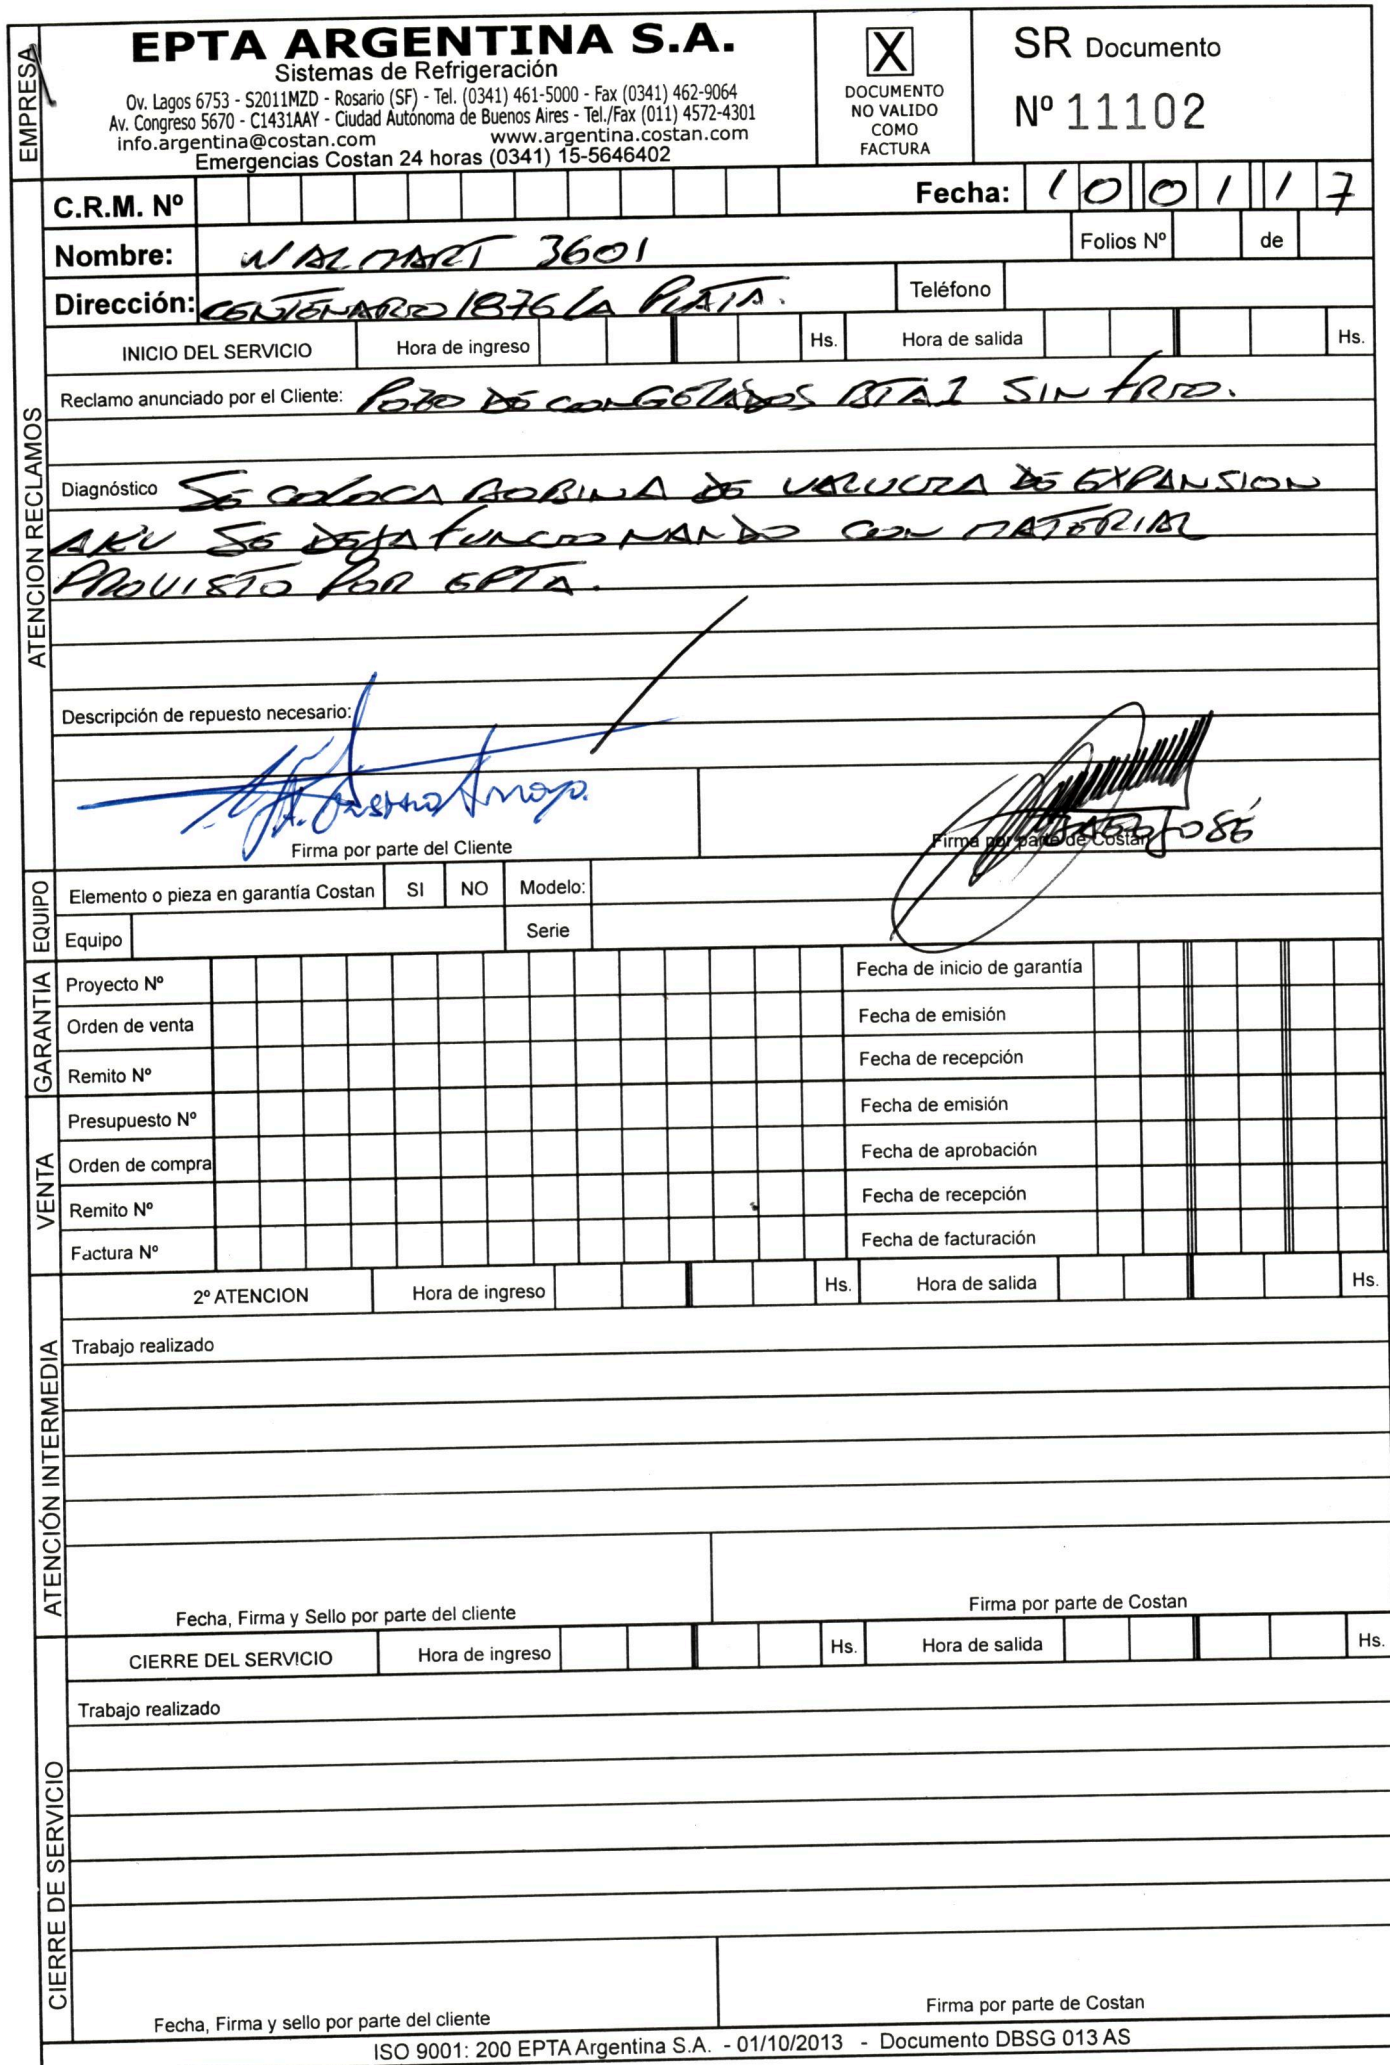 EMPRESA
EPTA ARGENTINA S.A.
Sistemas de Refrigeración
Ov. Lagos 6753 - S2011MZD - Rosario (SF) - Tel. (0341) 461-5000 - Fax (0341) 462-9064
Av. Congreso 5670 - C1431AAY - Ciudad Autónoma de Buenos Aires - Tel./Fax (011) 4572-4301
info.argentina@costan.com www.argentina.costan.com
Emergencias Costan 24 horas (0341) 15-5646402
X
DOCUMENTO
NO VALIDO
COMO
FACTURA
SR Documento
Nº 11102
ATENCION RECLAMOS
C.R.M. Nº Fecha: 10 01 17
Nombre: WALMART 3601 Folios Nº de
Dirección: CENTENARIO 1876 LA PLATA. Teléfono
INICIO DEL SERVICIO Hora de ingreso Hs. Hora de salida Hs.
Reclamo anunciado por el Cliente: POZO DE CONGELADOS SIN FRIO.
Diagnóstico SE COLOCA BOBINA DE VALVULA DE EXPANSION
AKV SE DEJA FUNCIONANDO CON MATERIAL
PROVISTO POR EPTA.
Descripción de repuesto necesario:
Arroyo.
JOSÉ
Firma por parte del Cliente Firma por parte de Costan
EQUIPO
Elemento o pieza en garantía Costan SI NO Modelo:
Equipo Serie
GARANTIA
Proyecto Nº Fecha de inicio de garantía
Orden de venta Fecha de emisión
Remito Nº Fecha de recepción
VENTA
Presupuesto Nº Fecha de emisión
Orden de compra Fecha de aprobación
Remito Nº Fecha de recepción
Factura Nº Fecha de facturación
ATENCIÓN INTERMEDIA
2º ATENCION Hora de ingreso Hs. Hora de salida Hs.
Trabajo realizado
Fecha, Firma y Sello por parte del cliente Firma por parte de Costan
CIERRE DE SERVICIO
CIERRE DEL SERVICIO Hora de ingreso Hs. Hora de salida Hs.
Trabajo realizado
Fecha, Firma y sello por parte del cliente Firma por parte de Costan
ISO 9001: 200 EPTA Argentina S.A. - 01/10/2013 - Documento DBSG 013 AS